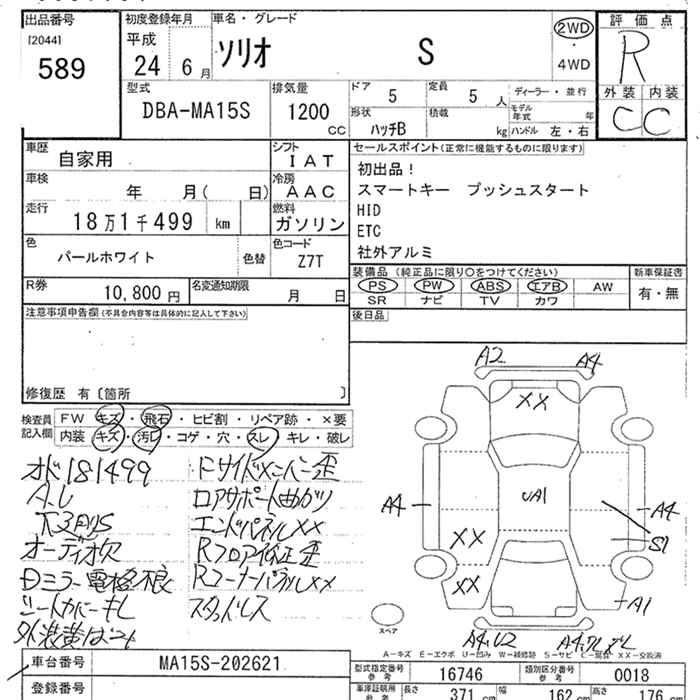 出品番号 初度登録年月 車名・グレード 2WD・4WD 評価点
[2044] 589 平成 24 6月 ソリオ S R
外装 内装
C C
型式 DBA-MA15S 排気量 1200 CC
ドア 5 定員 5人 ディーラー・並行
形状 ハッチB 積載 kg モデル年式 年 ハンドル 左・右
車歴 自家用 シフト IAT
車検 年 月( 日) 冷房 AAC
走行 18万1千499 km 燃料 ガソリン
色 パールホワイト 色替 色コード Z7T
R券 10,800円 名変通知期限 月 日
セールスポイント(正常に機能するものに限ります)
初出品!
スマートキー プッシュスタート
HID
ETC
社外アルミ
装備品(純正品に限り○をつけてください) 新車保証書
PS PW ABS エアB AW 有・無
SR ナビ TV カワ
後日品
注意事項申告欄(不具合内容等は具体的に記入して下さい)
修復歴 有〔箇所 〕
検査員記入欄 FW キズ・飛石・ヒビ割・リペア跡・×要
内装 キズ・汚レ・コゲ・穴・スレ・キレ・破レ
オド181499
オーディオ欠
Dミラー電格不良
シートカバーキレ
ロアサポート曲がり
エンドパネルXX
Rフロア修正 歪
RコーナーパネルXX
スタッドレス
A2 A4
XX
UA1
A4 A4
XX S1
XX
A1
A4.U2
スペア
A-キズ E-エクボ U-凹み W-補修跡 S-サビ C-腐食 XX-交換済
車台番号 MA15S-202621
登録番号
型式指定番号 参考 16746 類別区分番号 参考 0018
車庫証明用 参考 長さ 371 cm 幅 162 cm 高さ 176 cm